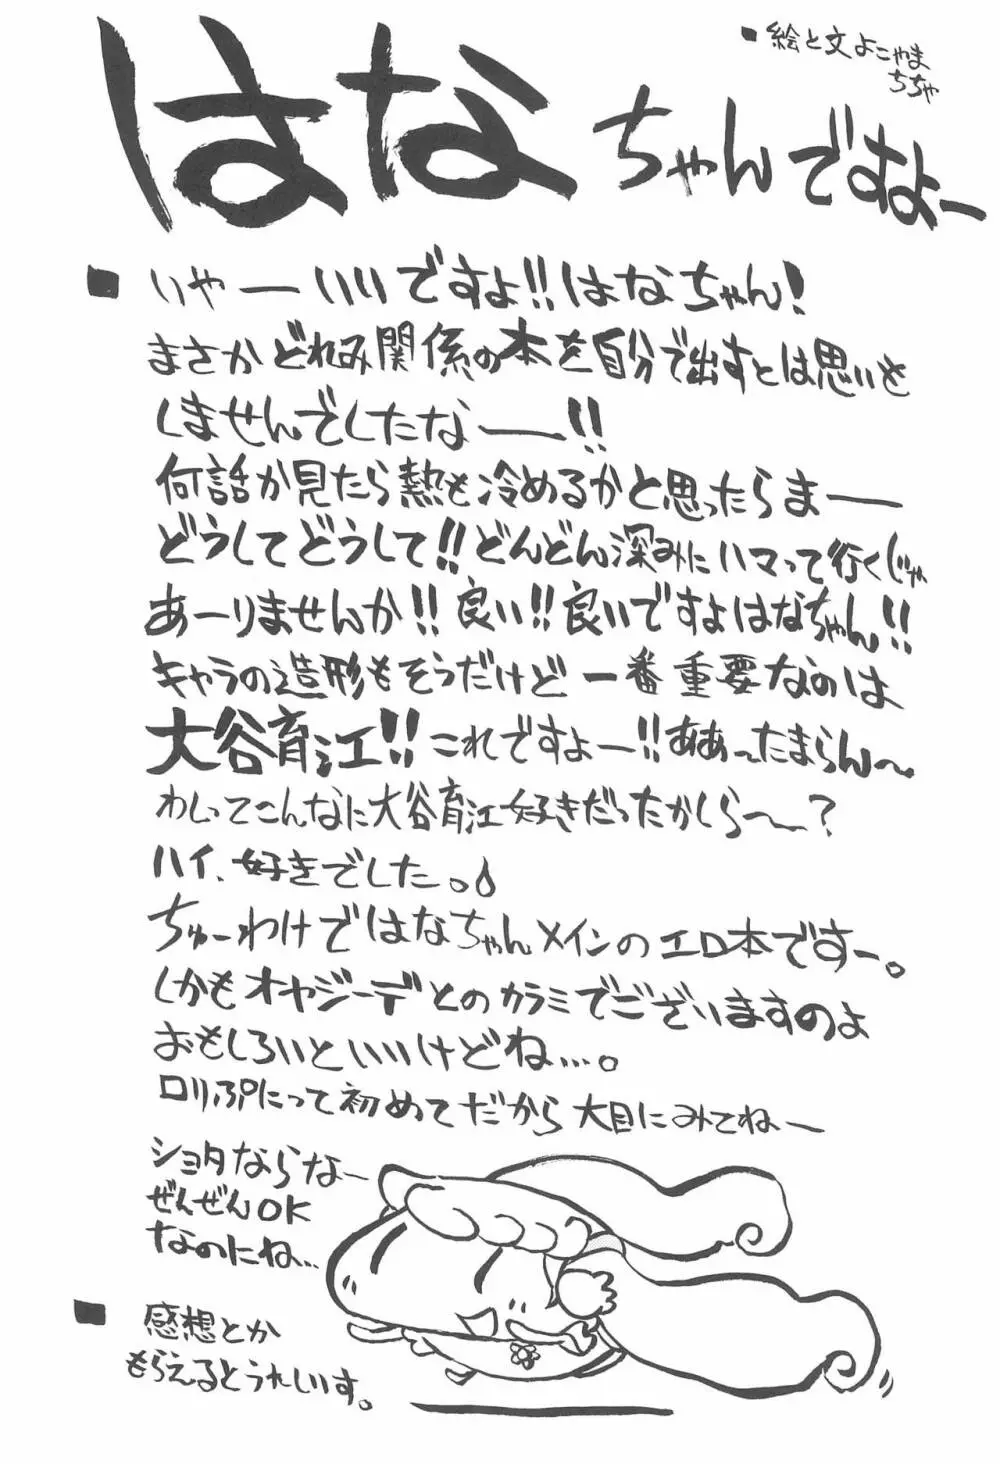 はなちゃんですよー
■絵と文よこやま
ちちゃ
■いやーいいですよ!!はなちゃん!
まさかどれみ関係の本を自分で出すとは思いも
しませんでしたなー!!
何話か見たら熱も冷めるかと思ったらまー
どうしてどうして!!どんどん深みにハマって行くじゃ
あーりませんか!!良い!!良いですよはなちゃん!!
キャラの造形もそうだけど一番重要なのは
大谷育江!!これですよー!!ああ〜たまらん〜
わしってこんなに大谷育江好きだったかしら〜?
ハイ、好きでした。
ちゅーわけではなちゃんメインのエロ本ですー。
しかもオヤジーデとのカラミでございますのよ
おもしろいといいけどね…。
ロリぷにって初めてだから大目にみてねー
ショタならなー
ぜんぜんOK
なのにね…
■感想とか
もらえるとうれしいす。